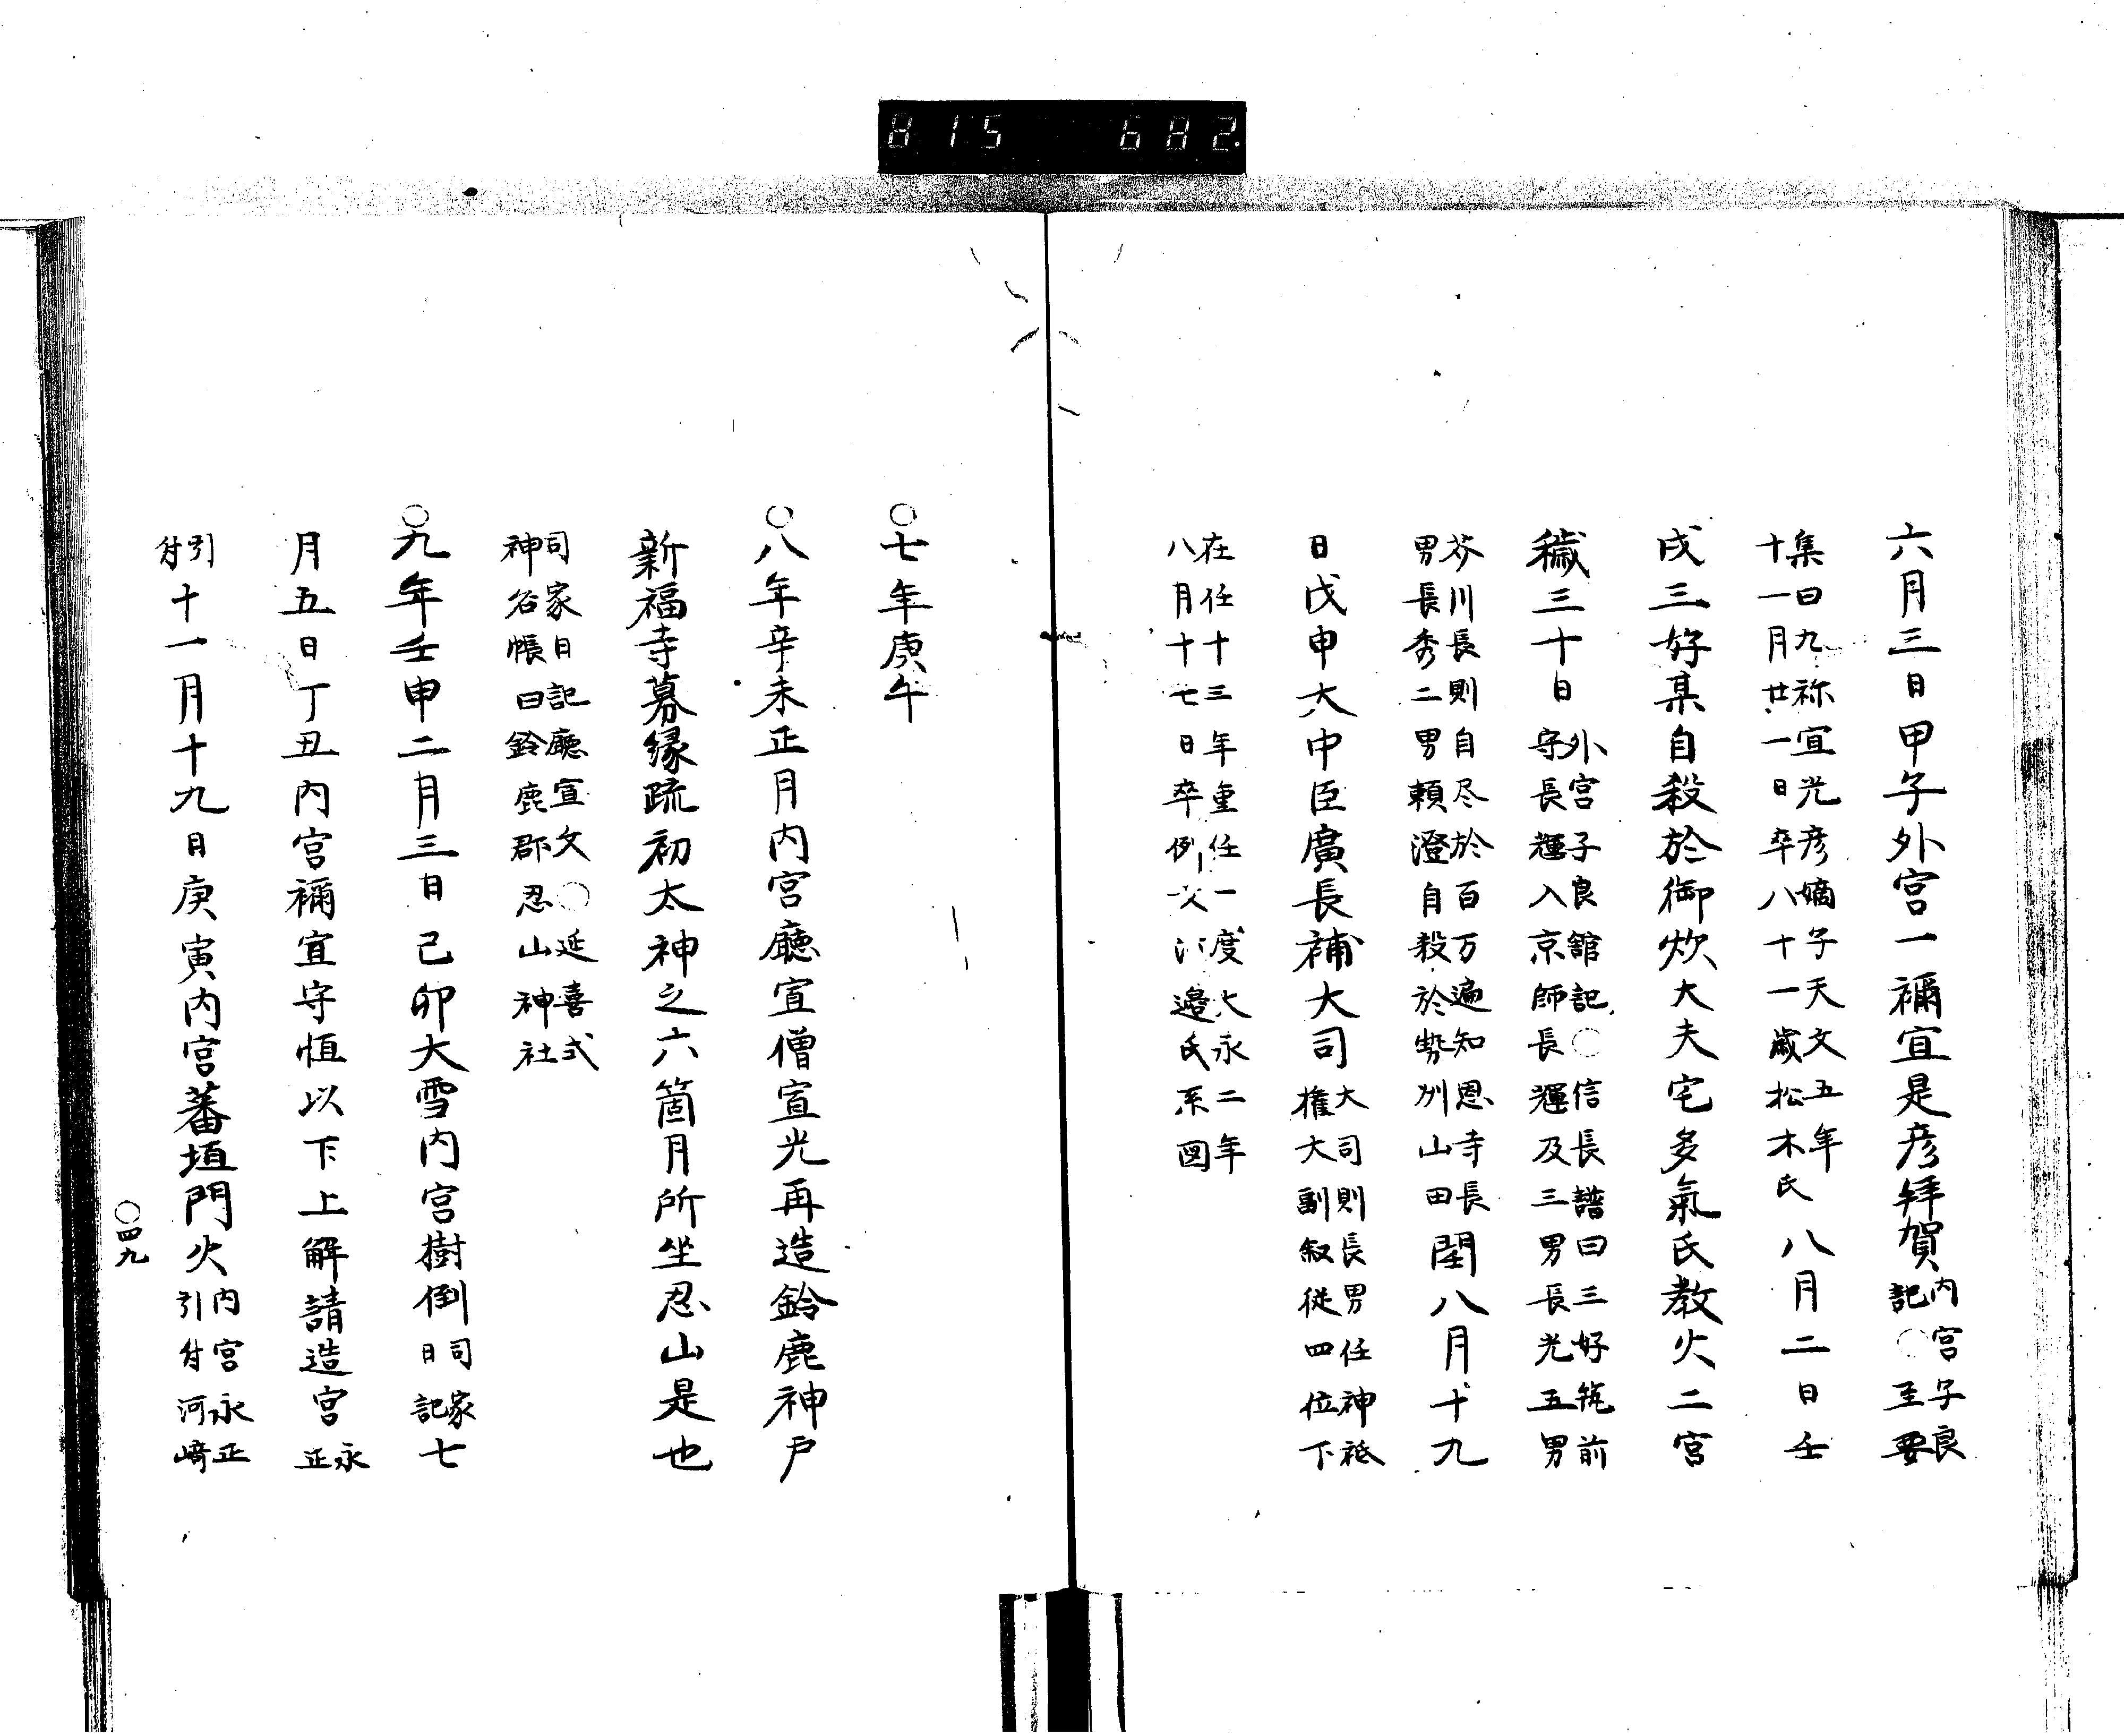 815 682.
六月三日甲子外宮一禰宜是彦拝賀内宮子良記○至要
集曰九祢宜光彦嫡子天文五年十一月廿一日卒八十一歳松木氏八月二日壬
戌三好某自殺於御炊大夫宅多氣氏教火二宮
穢三十日外宮子良館記○信長譜曰三好筑前守長輝入京師長輝及三男長光五男
芥川長則自尽於百万遍知恩寺長男長秀二男頼澄自殺於勢州山田閏八月十九
日戊申大中臣廣長補大司大司則長男任神祗権大副叙従四位下
在任十三年重任一度大永二年八月十七日卒例文河邉氏系図
○七年庚午
○八年辛未正月内宮廳宣僧宣光再造鈴鹿神戸
新福寺募縁疏初太神之六箇月所坐忍山是也
司家日記廳宣文○延喜式神名帳曰鈴鹿郡忍山神社
○九年壬申二月三日己卯大雪内宮樹倒司家日記七
月五日丁丑内宮禰宜守恒以下上解請造宮永正
引付十一月十九日庚寅内宮蕃垣門火内宮永正引付河﨑
○四九